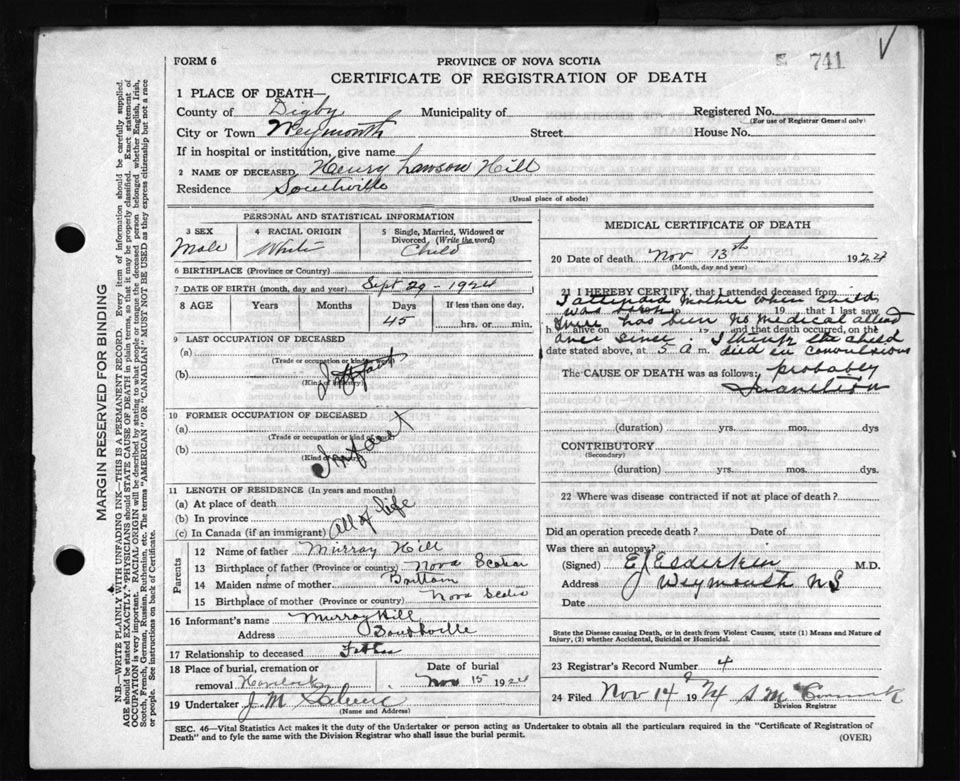 FORM 6
PROVINCE OF NOVA SCOTIA
741
CERTIFICATE OF REGISTRATION OF DEATH
1 PLACE OF DEATH—
County of Digby Municipality of Registered No.
(For use of Registrar General only)
City or Town Weymouth Street House No.
If in hospital or institution, give name
2 NAME OF DECEASED Henry Lawson Hill
Residence Southville
(Usual place of abode)
MARGIN RESERVED FOR BINDING
N.B.—WRITE PLAINLY WITH UNFADING INK—THIS IS A PERMANENT RECORD. Every item of information should be carefully supplied.
AGE should be stated EXACTLY. PHYSICIANS should STATE CAUSE OF DEATH in plain terms, so that it may be properly classified. Exact statement of
OCCUPATION is very important. RACIAL ORIGIN will be described by stating to what people or tongue the deceased person belonged whether English, Irish,
Scotch, French, German, Russian, Ruthenian, etc. The terms "AMERICAN" OR "CANADIAN" MUST NOT BE USED as they express citizenship but not a race
or people. See instructions on back of Certificate.
PERSONAL AND STATISTICAL INFORMATION
3 SEX 4 RACIAL ORIGIN 5 Single, Married, Widowed or
Divorced (Write the word)
Male White Child
6 BIRTHPLACE (Province or Country)
7 DATE OF BIRTH (month, day and year) Sept 29 - 1924
8 AGE Years Months Days If less than one day,
45 hrs. or min.
9 LAST OCCUPATION OF DECEASED
(a)
(Trade or occupation or kind of work)
(b) Infant
(Kind of industry)
10 FORMER OCCUPATION OF DECEASED
(a)
(Trade or occupation or kind of work)
(b) Infant
(Kind of industry)
11 LENGTH OF RESIDENCE (In years and months)
(a) At place of death
(b) In province All of life
(c) In Canada (if an immigrant)
Parents
12 Name of father Murray Hill
13 Birthplace of father (Province or country) Nova Scotia
14 Maiden name of mother
15 Birthplace of mother (Province or country) Nova Scotia
16 Informant's name Murray Hill
Address Southville
17 Relationship to deceased Father
18 Place of burial, cremation or Date of burial
removal Havelock Nov 15 1924
19 Undertaker J. M
(Name and Address)
MEDICAL CERTIFICATE OF DEATH
20 Date of death Nov 13th 1924
(Month, day and year)
21 I HEREBY CERTIFY, that I attended deceased from
I attended mother when child
was born 19 that I last saw
there has been no medical attend
h alive on 19 and that death occurred, on the
ance since. I think the child
date stated above, at 5 a m. died in convulsions
The CAUSE OF DEATH was as follows: probably
Inanition
(duration) yrs. mos. dys
CONTRIBUTORY
(Secondary)
(duration) yrs. mos. dys.
22 Where was disease contracted if not at place of death?
Did an operation precede death? Date of
Was there an autopsy?
(Signed) E J Elderkin M.D.
Address Weymouth NS
Date
State the Disease causing Death, or in death from Violent Causes, state (1) Means and Nature of
Injury, (2) whether Accidental, Suicidal or Homicidal.
23 Registrar's Record Number 4
24 Filed Nov 14 1924 S M
Division Registrar
SEC. 46—Vital Statistics Act makes it the duty of the Undertaker or person acting as Undertaker to obtain all the particulars required in the "Certificate of Registration of
Death" and to fyle the same with the Division Registrar who shall issue the burial permit. (OVER)